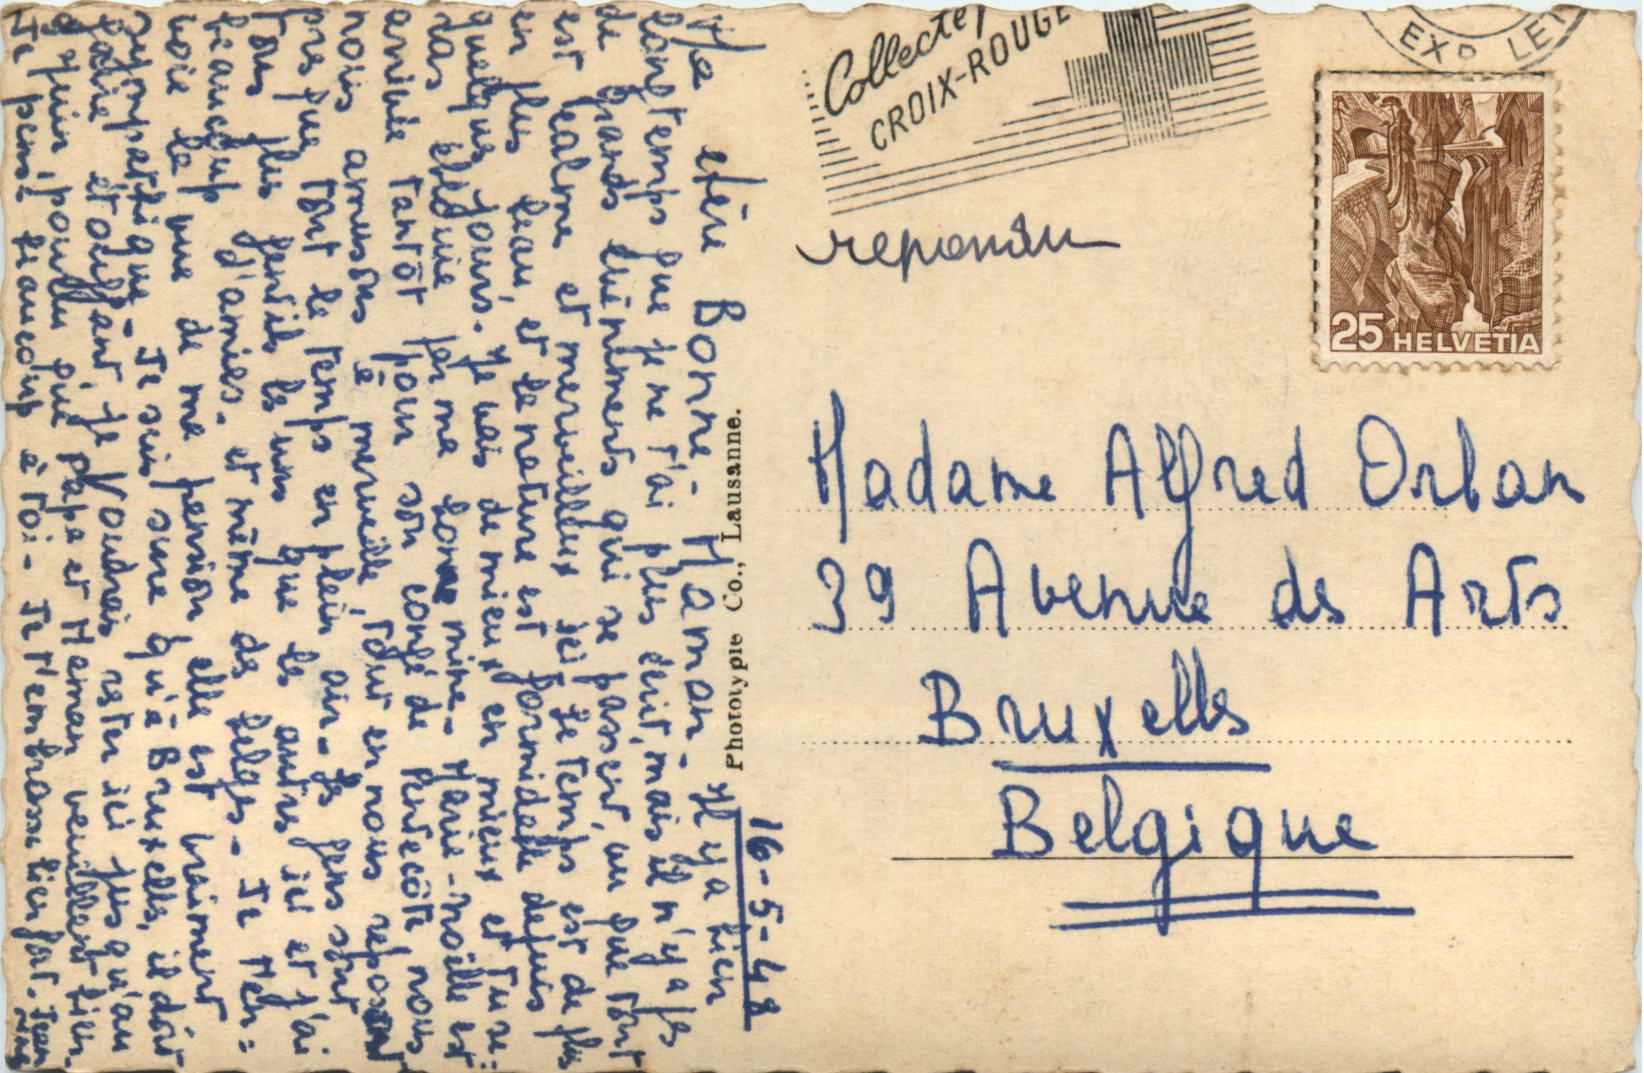 16-5-48
Ma chère Bonne-Maman - Il y a bien
longtemps que je ne t'ai plus écrit, mais il n'y a pas
de grands événements qui se passent, vu que tout
est calme et merveilleux ici. Le temps est de plus
en plus beau, et la nature est formidable depuis
quelques jours. Je vais de mieux en mieux et tu se=
ras éblouie par ma bonne mine - Marie-Noëlle est
arrivée tantôt pour son congé de Pentecôte, nous
nous amusons à merveille, tout en nous reposant
presque tout le temps en plein air - Les gens sont
tous plus gentils les uns que les autres ici et j'ai
beaucoup d'amies. et même de belges - Je t'en=
voie la vue de ma pension elle est vraiment
sympathique - Je suis sûre qu'à Bruxelles, il doit
faire étouffant, je voudrais rester ici jusqu'au
juin, pourvu que Papa et Maman veuillent bien.
Je pense beaucoup à toi - Je t'embrasse bien fort.
Phototypie Co., Lausanne.
Collecte
CROIX-ROUGE
EXP LET
25 HELVETIA
repondu
Madame Alfred Orban
39 Avenue des Arts
Bruxelles
Belgique